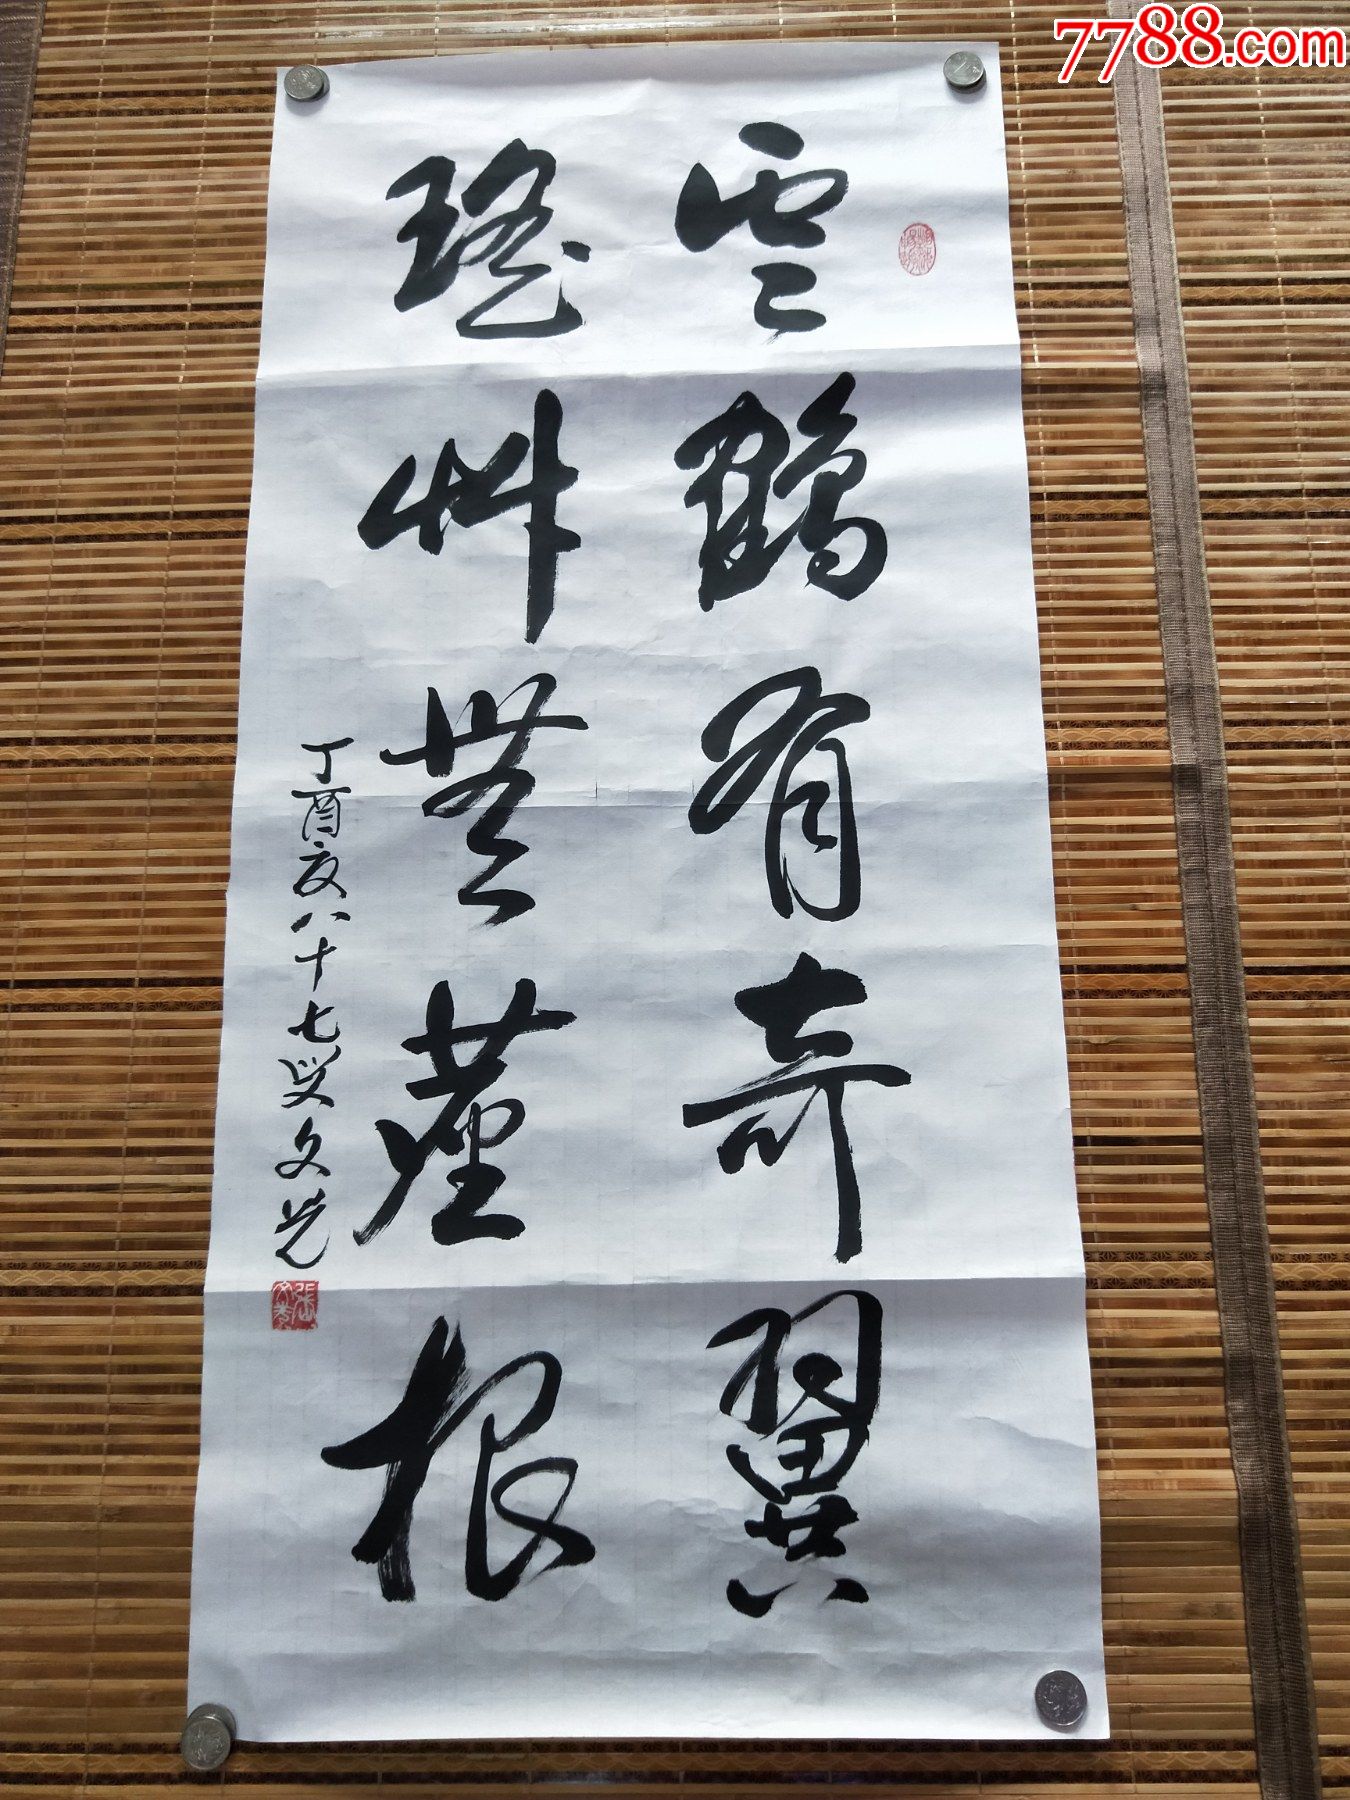 7788.com
雲鶴有奇翼
瑤艸無塵根
丁酉夏八十七叟文光